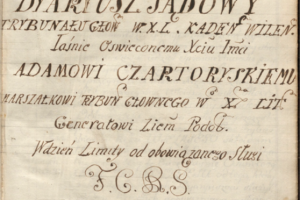 DIARIUSZ SĄDOWY
TRYBUNAŁU GŁOW. W.X.L. KADEN. WILEN.
Iaśnie Oświeconemu Xciu Imci
ADAMOWI CZARTORYSKIEMU
MARSZAŁKOWI TRYBUN. GŁOWNEGO W. X. LIT.
Generałowi Ziem Podol.
W dzień Limity od obowiązanego Sługi
F. C. B. S.